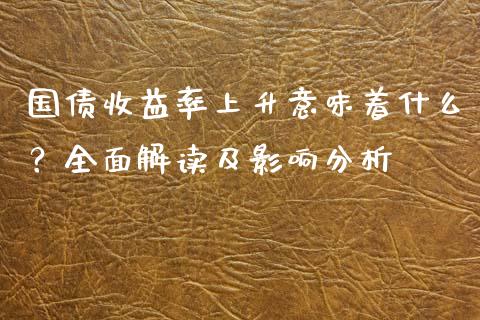 国债收益率上升意味着什么
？全面解读及影响分析